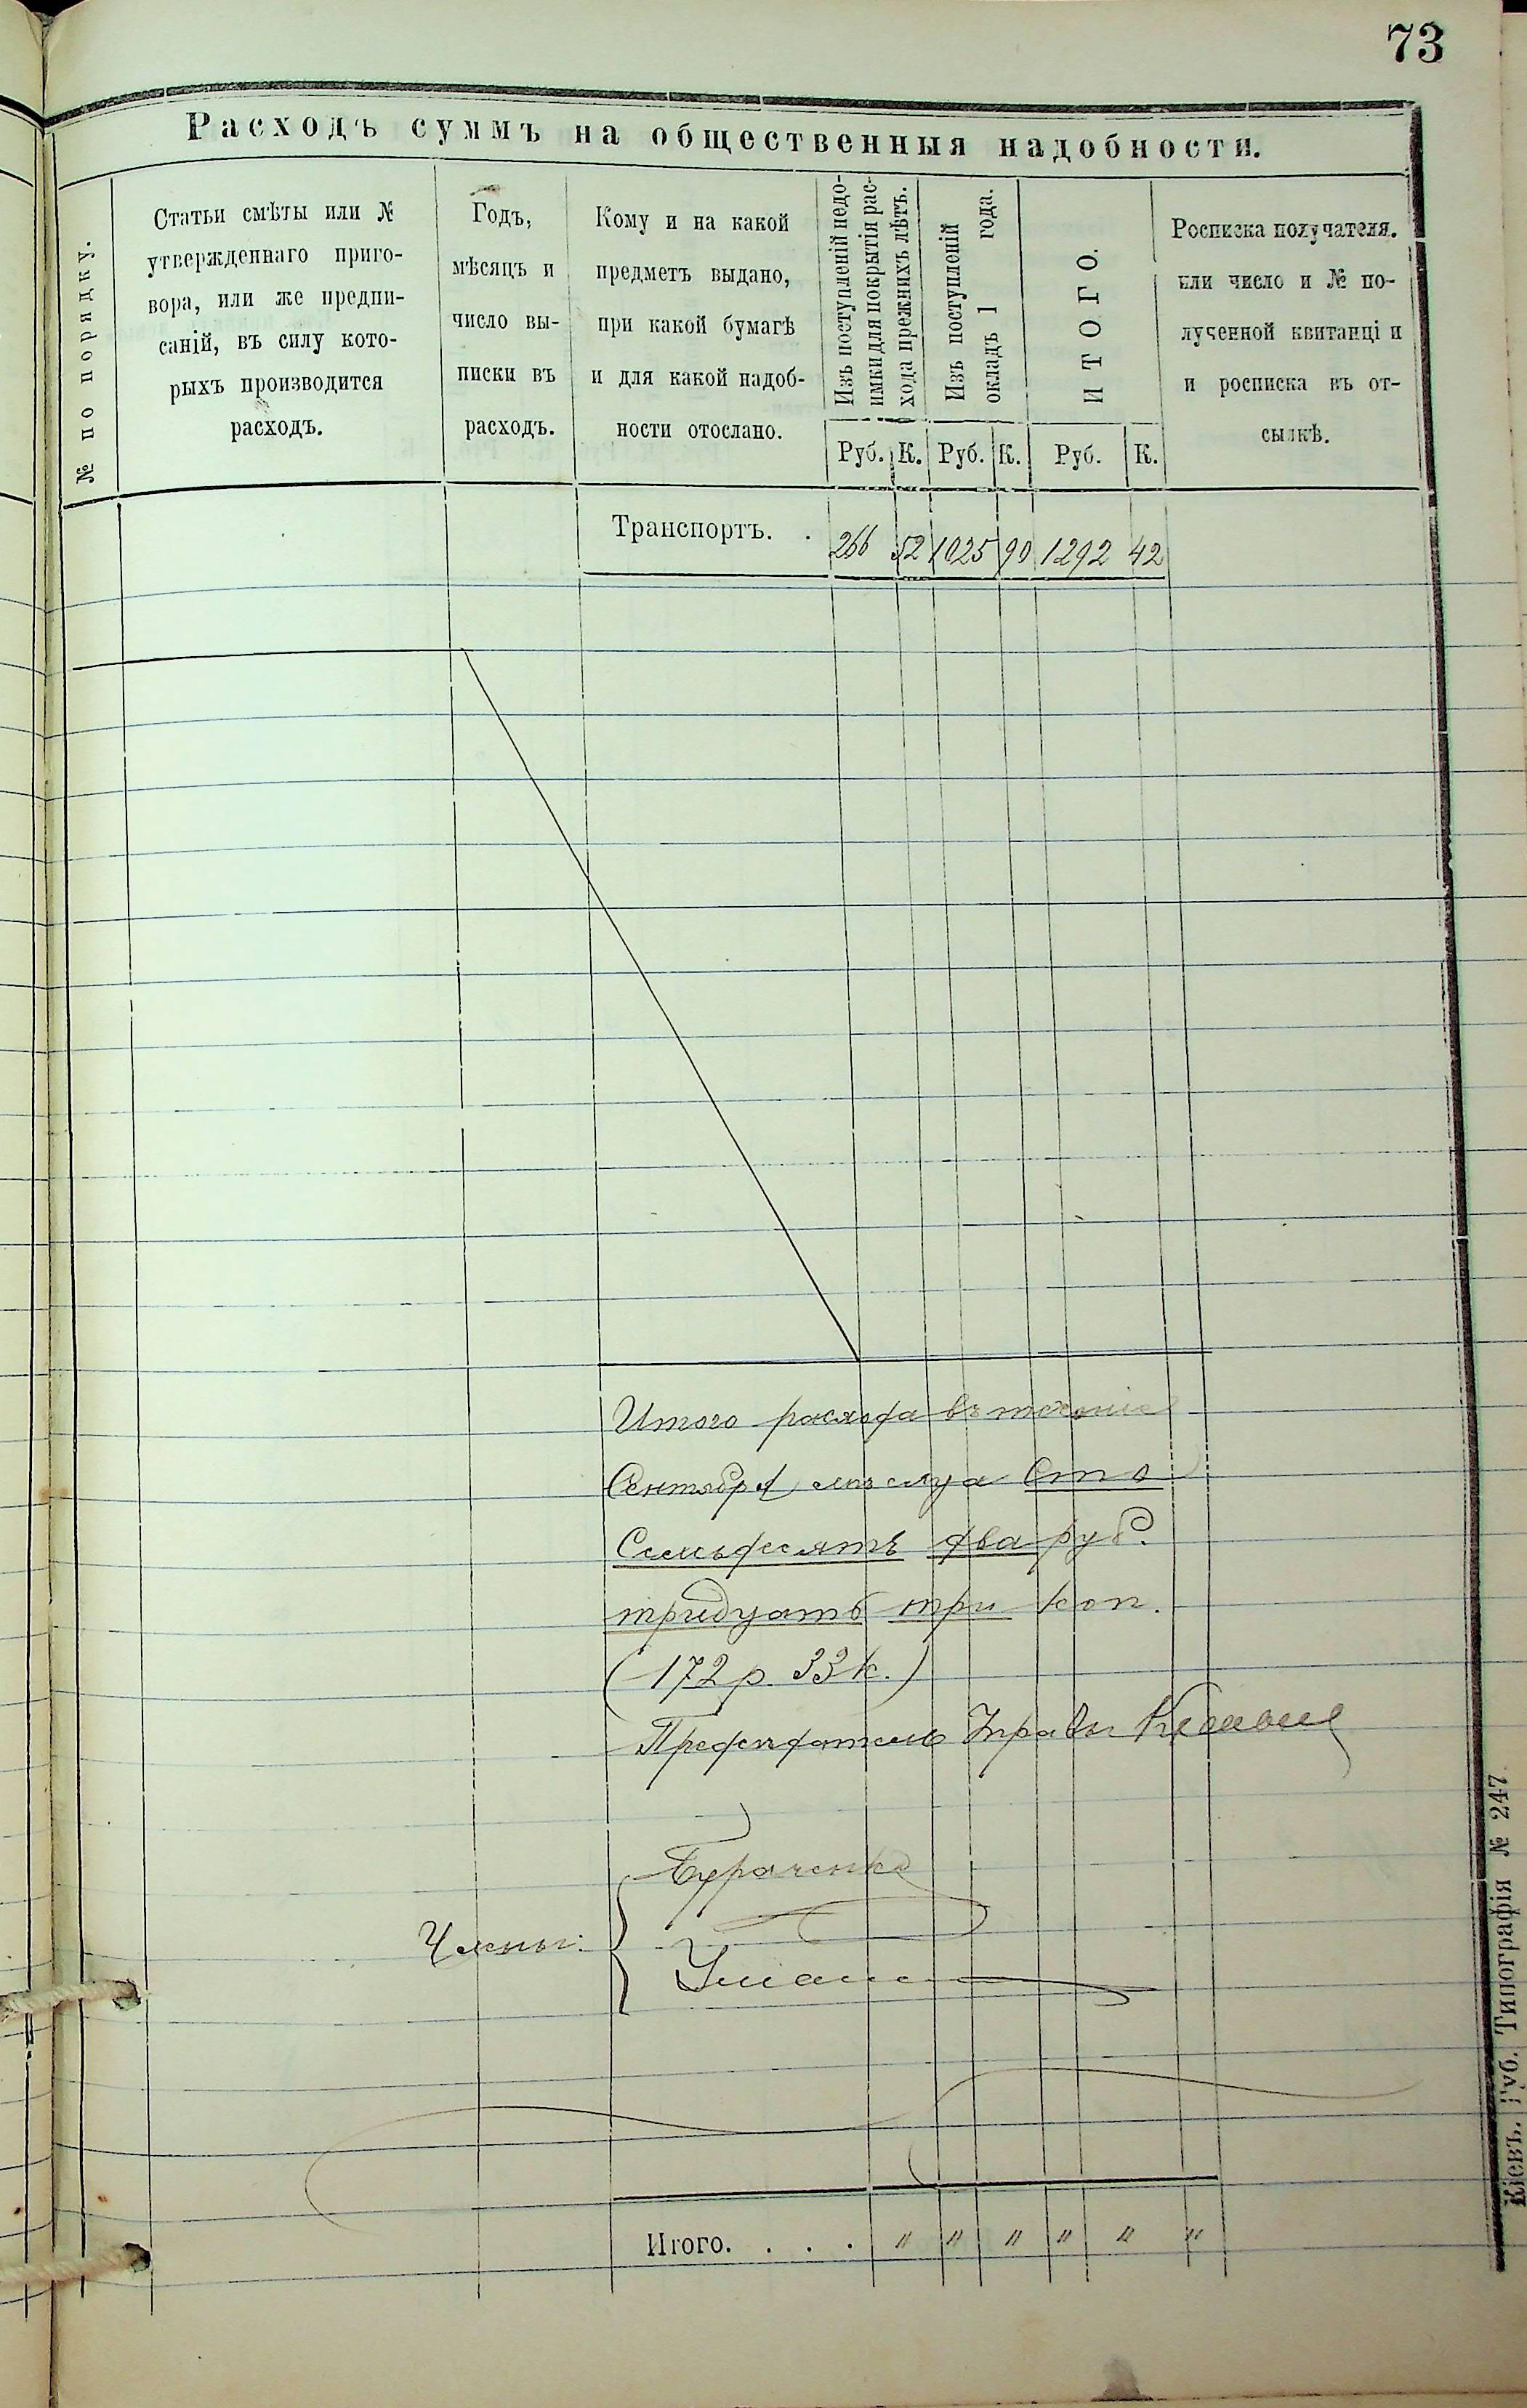 73
Расходъ суммъ на общественныя надобности.
№ по порядку.
Статьи смѣты или №
утвержденнаго приго-
вора, или же предпи-
саній, въ силу кото-
рыхъ производится
расходъ.
Годъ,
мѣсяцъ и
число вы-
писки въ
расходъ.
Кому и на какой
предметъ выдано,
при какой бумагѣ
и для какой надоб-
ности отослано.
Изъ поступленій недо-
имки для покрытія рас-
хода прежнихъ лѣтъ.
Изъ поступленій
окладъ 1 года.
ИТОГО.
Росписка получателя.
или число и № по-
лученной квитанціи
и росписка въ от-
сылкѣ.
Руб. К. Руб. К. Руб. К.
Транспортъ. . 266 52 1025 90 1292 42
Итого расхода въ теченіе
Сентября мѣсяца Сто
Семьдесятъ два руб.
тридцать три коп.
(172 р. 33 к.)
Предсѣдатель Управы
Бураченко
Члены:
Итого. . . . " " " " " "
Кіевъ. Губ. Типографія № 247.